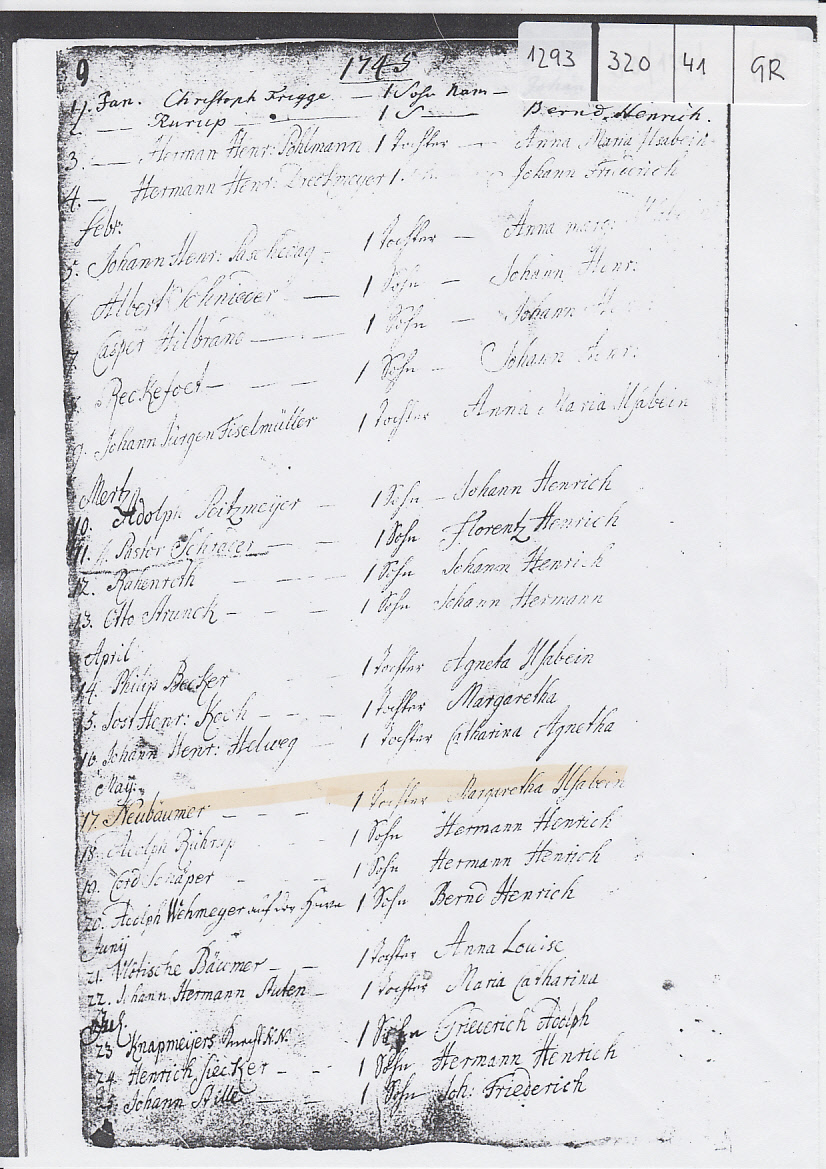 1293 320 41 GR
9 1745
1. Jan. Christoph Frigge — 1 Sohn Nam —
2 — Rurup — 1 S — Bernd Henrich.
3. — Herman Henr: Pohlmann 1 Tochter — Anna Maria Ilsabein
4. — Hermann Henr: Dreckmeyer 1 Johann Friederich
Febr:
5. Johann Henr: 1 Tochter — Anna marg:
6 Albert Schnieder — 1 Sohn — Johann Henr:
7. Casper Hilbrand — 1 Sohn — Johann
Reckefoet — 1 Sohn — Johann Henr:
9. Johann Jürgen Fiselmüller 1 Tochter Anna Maria Ilsabein
Mertz
10. Adolph Seitzmeyer — 1 Sohn — Johann Henrich
11. H. Pastor Schrader — 1 Sohn Florentz Henrich
12. Rahenroth — 1 Sohn Johann Henrich
13. Otto Strunck — 1 Sohn Johann Hermann
April
14. Philip Becker 1 Tochter Agneta Ilsabein
15. Jost Henr: Koch — 1 Tochter Margaretha
16. Johann Henr: Helweg — 1 Tochter Catharina Agnetha
May:
17. Neubäumer — 1 Tochter Margaretha Ilsabein
18. Adolph Rührup 1 Sohn Hermann Henrich
19. Cord Schäper — 1 Sohn Hermann Henrich
20. Adolph Wehmeyer auf der 1 Sohn Bernd Henrich
Junij
21. Bäumer — 1 Tochter Anna Louise
22. Johann Hermann Stuten — 1 Tochter Maria Catharina
23 Knapmeijers Knecht N.N. 1 Sohn Friederich Adolph
24. Henrich Siecker — 1 Sohn Hermann Henrich
25. Johann Stille — 1 Sohn Joh: Friederich